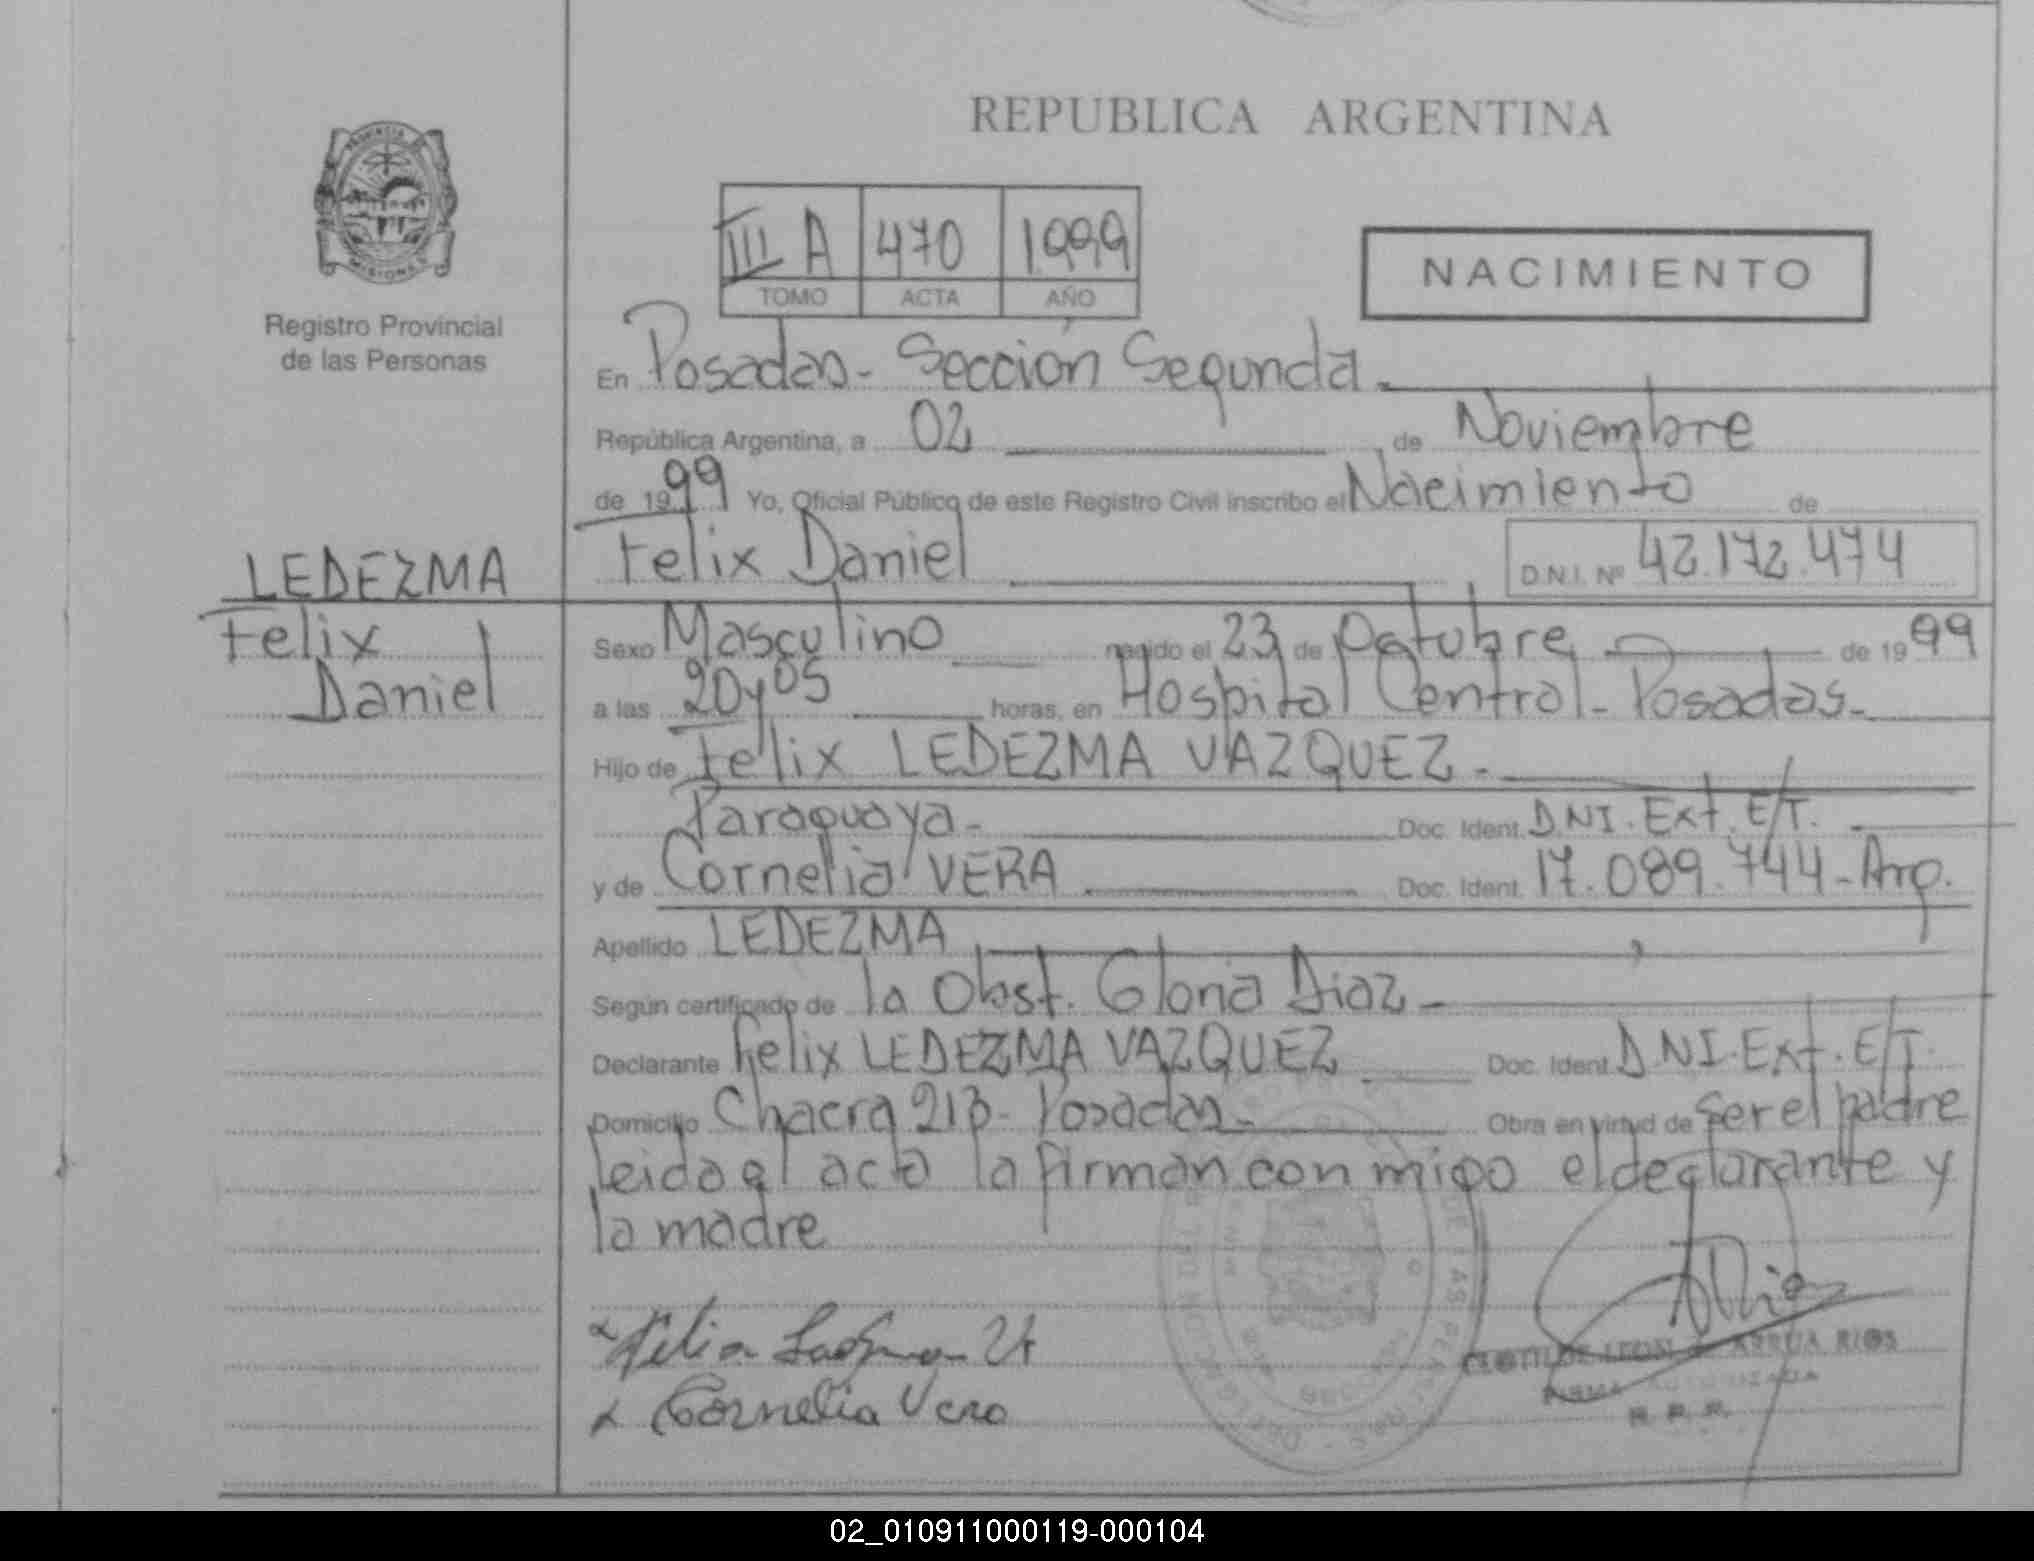 REPUBLICA ARGENTINA
PROVINCIA
MISIONES
Registro Provincial
de las Personas
III A 470 1999
TOMO ACTA AÑO
NACIMIENTO
En Posadas - Sección Segunda.
República Argentina, a 02 de Noviembre
de 1999 Yo, Oficial Público de este Registro Civil inscribo el Nacimiento de
Felix Daniel D.N.I. Nº 42.172.474
LEDEZMA
Felix
Daniel
Sexo Masculino nacido el 23 de Octubre de 1999
a las 20y05 horas, en Hospital Central - Posadas -
Hijo de Felix LEDEZMA VAZQUEZ -
Paraguaya - Doc. Ident. D.NI. Ext. E/T.
y de Cornelia VERA Doc. Ident. 17.089.744 - Arg.
Apellido LEDEZMA
Según certificado de la Obst. Gloria Diaz -
Declarante Felix LEDEZMA VAZQUEZ Doc. Ident. D.NI. Ext. E/T.
Domicilio Chacra 213 - Posadas - Obra en virtud de ser el padre
leida el acta la firman con migo el declarante y
la madre
Cornelia Vera
CLOTILDE LEON ARRUA RIOS
FIRMA AUTORIZADA
R. P. P.
02_010911000119-000104